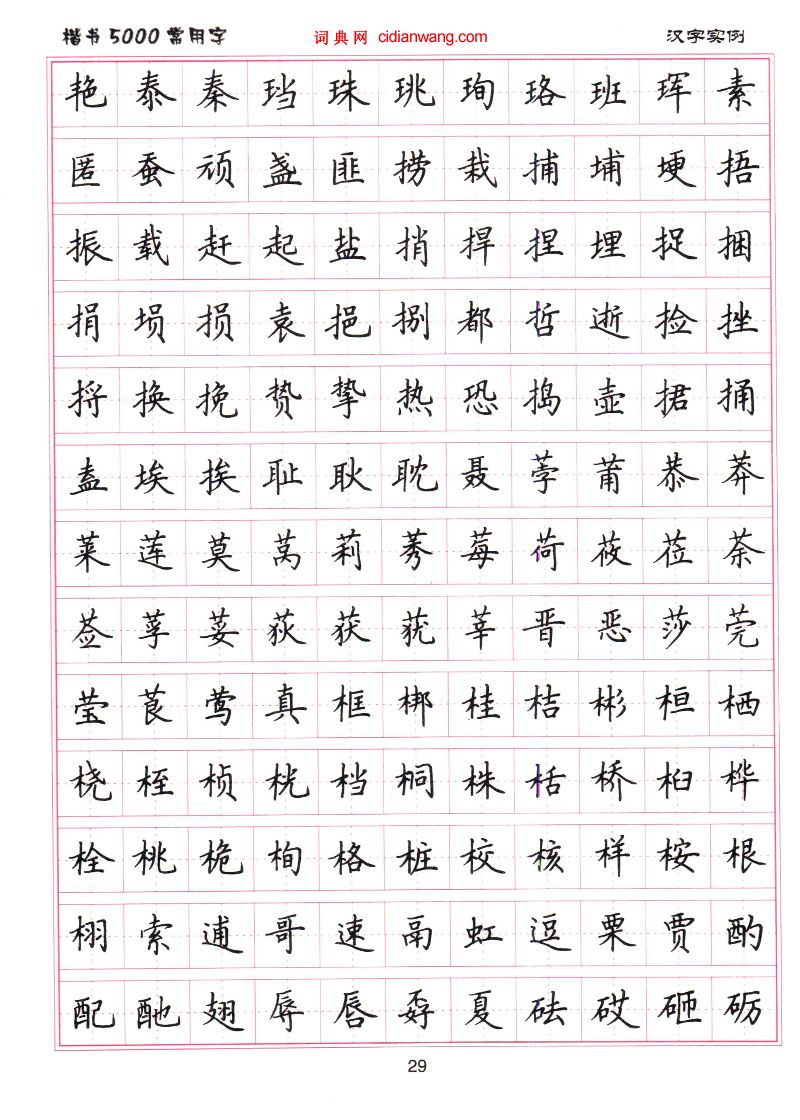 楷书5000常用字 词典网 cidianwang.com 汉字实例
艳 泰 秦 珰 珠 珧 珣 珞 班 珲 素
匿 蚕 顽 盏 匪 捞 栽 捕 埔 埂 捂
振 载 赶 起 盐 捎 捍 捏 埋 捉 捆
捐 埙 损 袁 挹 捌 都 哲 逝 捡 挫
捋 换 挽 贽 挚 热 恐 捣 壶 捃 捅
盍 埃 挨 耻 耿 耽 聂 荸 莆 恭 莽
莱 莲 莫 莴 莉 莠 莓 荷 莜 莅 荼
莶 莩 荽 荻 获 莸 莘 晋 恶 莎 莞
莹 莨 莺 真 框 梆 桂 桔 彬 桓 栖
桡 桎 桢 桄 档 桐 株 栝 桥 桕 桦
栓 桃 桅 栒 格 桩 校 核 样 桉 根
栩 索 逋 哥 速 鬲 虹 逗 栗 贾 酌
配 酏 翅 辱 唇 孬 夏 砝 砹 砸 砺
29